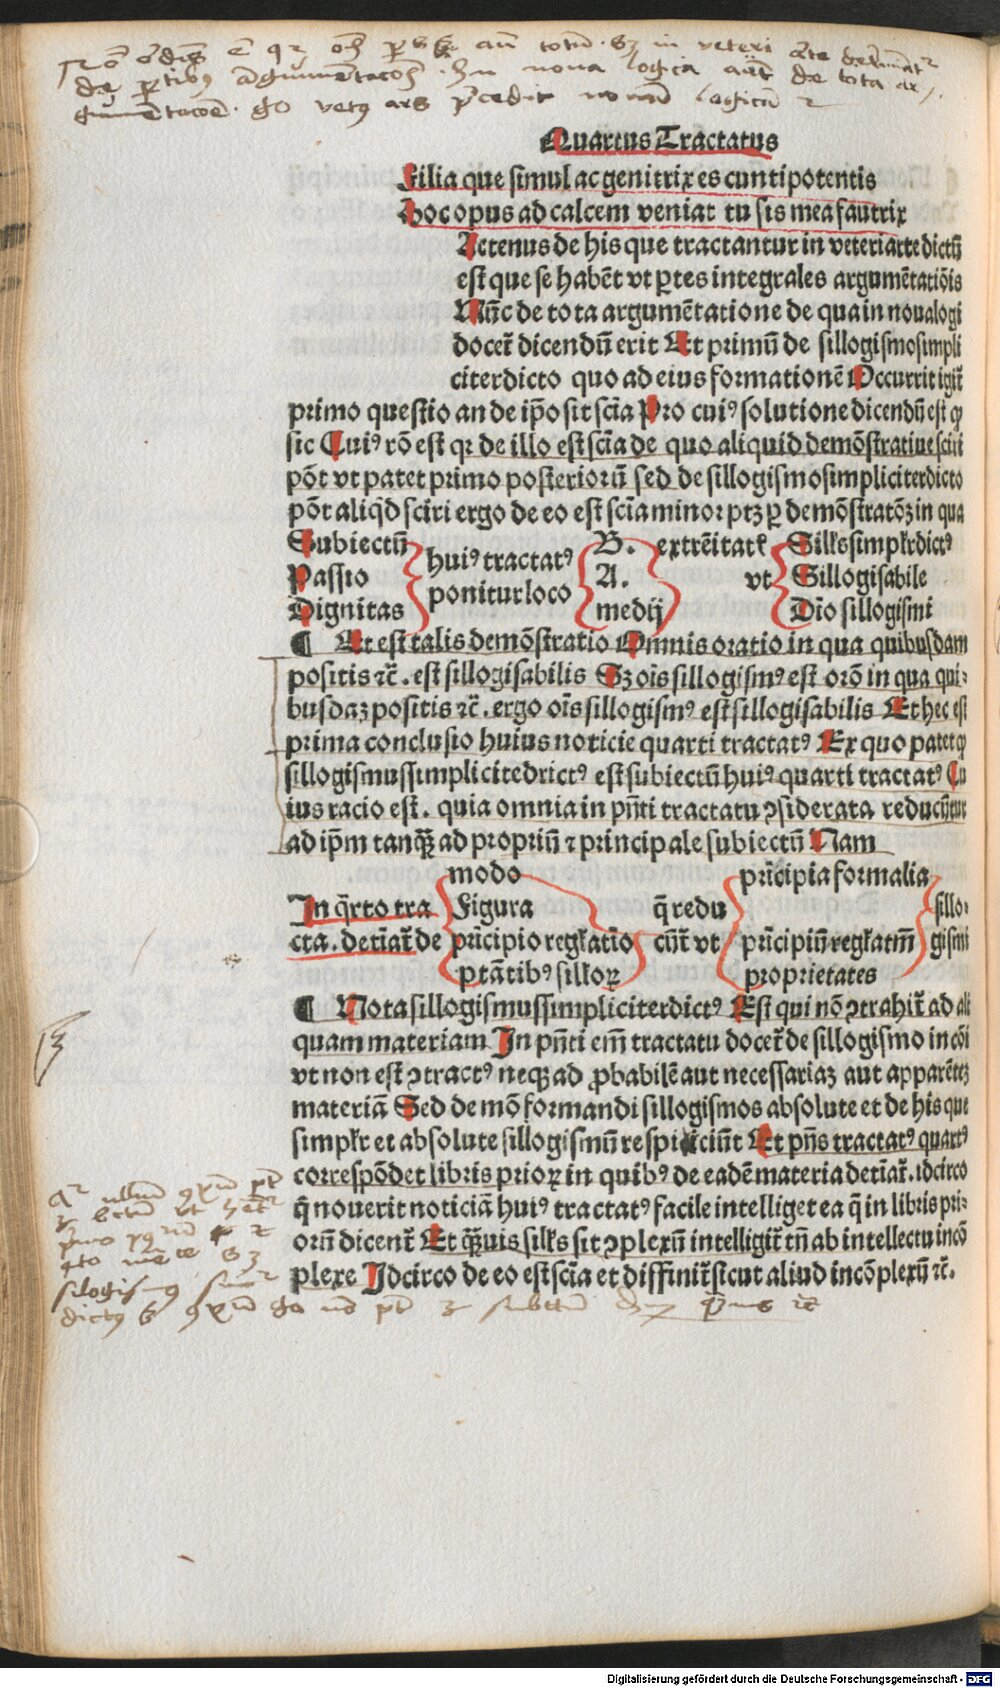 Rō ordīs ē qꝛ
de ꝑtibus argumētacōis. In noua logica aūt de tota ar
gumētacōe. go vetus ars p̄cedit nouā logicā
Quartus Tractatus
Filia que simul ac genitrix es cuntipotentis
Hoc opus ad calcem veniat tu sis mea fautrix
Actenus de his que tractantur in veteri arte dictū
est que se habēt vt ꝑtes integrales argumētatiōis
Nūc de tota argumētatione de qua in noua logi
docet᷑ dicendū erit Et primū de sillogismo simpli
citer dicto quo ad eius formationē Occurrit igit᷑
primo questio an de ip̄o sit scīa Pro cuiꝰ solutione dicendū est ꝙ
sic Cuiꝰ rō est qꝛ de illo est scīa de quo aliquid demōstratiue sciri
pōt vt patet primo posteriorū sed de sillogismo simpliciter dicto
pōt aliq̄d sciri ergo de eo est scīa minor ptꝫ ꝑ demōstratōꝫ in qua
Subiectū huiꝰ tractatꝰ B. extrēitatꝭ Sillꝰs simplr̄ dictꝰ
Passio A. vt Sillogisabile
Dignitas ponitur loco medij Diō sillogismi
¶ Et est talis demōstratio Omnis oratio in qua quibusdam
positis ⁊c̄. est sillogisabilis Sꝫ oīs sillogismꝰ est orō in qua qui⸗
busdaꝫ positis ⁊c̄. ergo oīs sillogismꝰ est sillogisabilis Et hec est
prima conclusio huius noticie quarti tractatꝰ Ex quo patet ꝙ
sillogismus simplicitedrictꝰ est subiectū huiꝰ quarti tractatꝰ Cu
ius racio est. quia omnia in pn̄ti tractatu ꝯsiderata reducūtur
ad ip̄m tanqꝫ ad propriū ⁊ principale subiectū Nam
modo pr̄icipia formalia
In q̄rto tra Figura q̄ redu sillo⸗
cta. det̄iat᷑ de pr̄icipio regl̄atīo cūt᷑ vt pr̄icipiū regl̄atīū gismi
ptātibꝰ silloꝝ proprietates
¶ Nota sillogismus simpliciter dictꝰ Est qui nō ꝯtrahit᷑ ad ali
quam materiam In pn̄ti em̄ tractatu docet᷑ de sillogismo in cōi
vt non est ꝯtractꝰ neqꝫ ad ꝓbabilē aut necessariaꝫ aut apparētēꝫ
materiā Sed de mō formandi sillogismos absolute et de his que
simplr̄ et absolute sillogismū respiciciūt Et pn̄s tractatꝰ quartꝰ
correspōdet libris prioꝝ in quibꝰ de eadē materia det̄iat᷑. idcirco
q̄ nouerit noticiā huiꝰ tractatꝰ facile intelliget ea q̄ in libris pri⸗
orū dicent᷑ Et qꝫuis sill̄s sit ꝯplexū intelligit᷑ tn̄ ab intellectu incō
plexe Idcirco de eo est scīa et diffinit᷑ sicut aliud incōplexū ⁊c̄.
silogismus
dictus
Digitalisierung gefördert durch die Deutsche Forschungsgemeinschaft - DFG